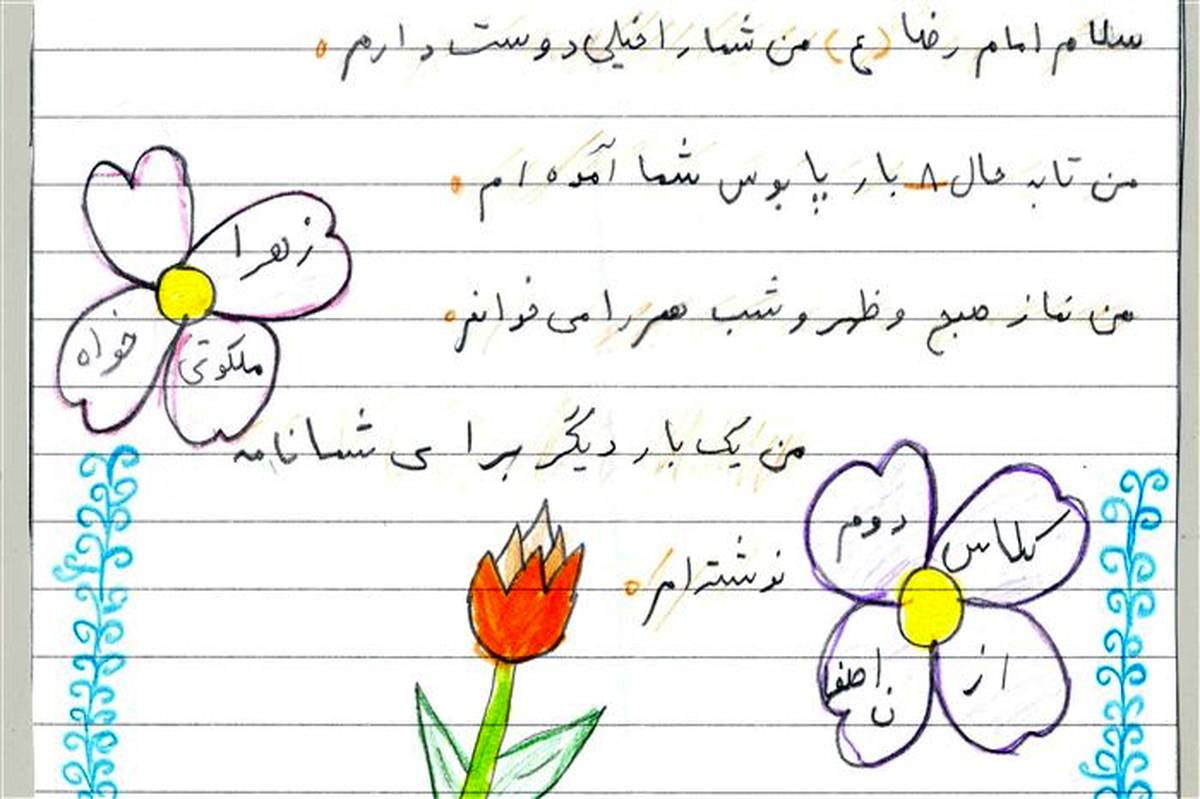 سلام امام رضا (ع) من شما را خیلی دوست دارم.
من تا به حال ۸ بار پا بوس شما آمده ام.
من نماز صبح و ظهر و شب هم را می خوانم.
من یک بار دیگر برا ی شما نامه
نوشته ام.
زهرا
ملکوتی
خواه
کلاس
دوم
از
اصفا
ن